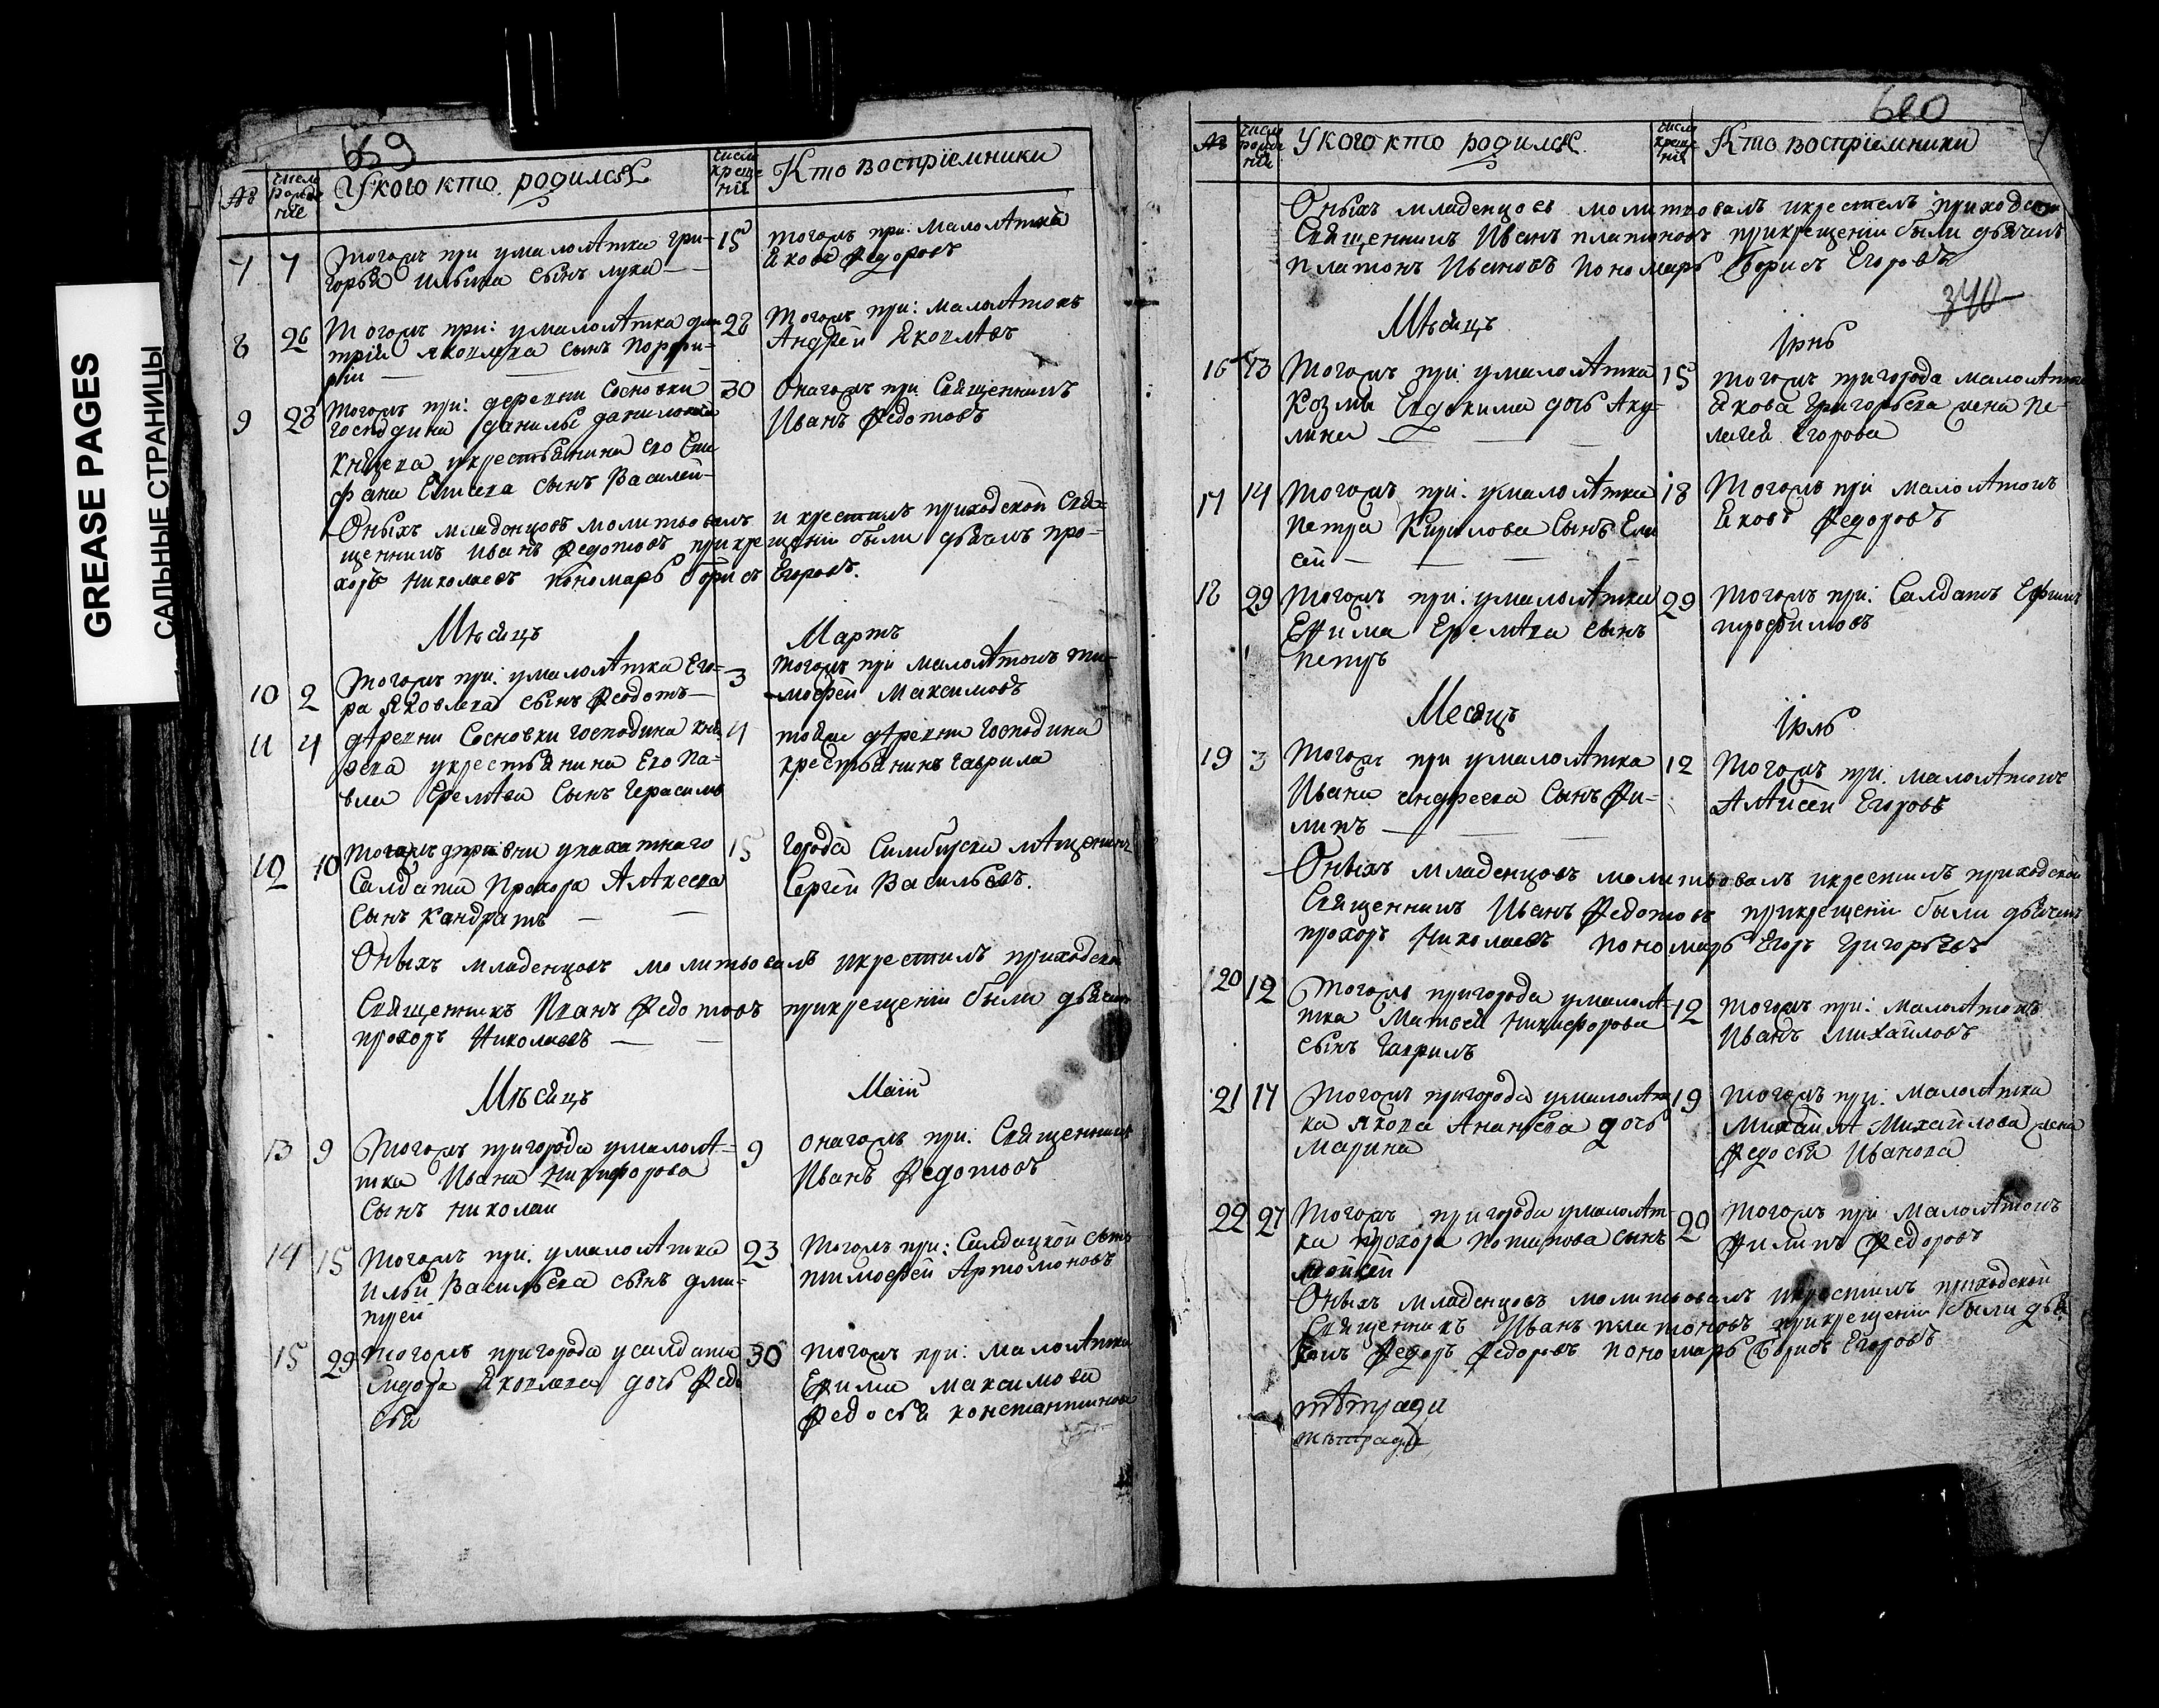 GREASE PAGES
САЛЬНЫЕ СТРАНИЦЫ
659
№
число рожде нiе
У кого кто родился
число креще нiя
Кто воспрiемники
7 7 тогожъ при у малолѣтка Гри-
горья Ильина сынъ Лука
15 тогожъ при: малолѣтка
Яковъ Федоровъ
8 26 Тогожъ при: у малолѣтка Дми
трiя Яковлева сынъ Порфи-
рiи
28 тогожъ при: малолѣтокъ
Андрей Яковлевъ
9 28 тогожъ при: деревни Сосновки
господина Данилы Данилова
Князева у крестьянина Его Епи
фана Елисева сынъ Василей
30 Онагожъ при Священникъ
Иванъ Федотовъ
Оныхъ младенцовъ молитвовалъ и крестилъ приходской Свя-
щенникъ Иванъ Федотовъ при крещенiи были дьячекъ Про-
хоръ Николаевъ пономарь Борисъ Егоровъ.
Мѣсяцъ Мартъ
10 2 Тогожъ при: у малолѣтка Его-
ра Яковлева сынъ Федотъ
3 тогожъ при малолѣтокъ Ти-
мофей Максимовъ
11 4 дѣревни Сосновки господина Кня
зева у крестьянина Его Па-
вла Еремѣва сынъ Герасимъ
4 тойже дѣревни господина
крестьянинъ Гаврила
12 10 Тогожъ деревни у пахатнаго
Салдата Прохора Алѣксева
Сынъ Кандратъ
15 города Симбирска мѣщенинъ
Сергей Васильевъ.
Оныхъ младенцовъ молитвовалъ и крестилъ приходской
Священникъ Иванъ Федотовъ при крещенiи были дьячекъ
Прохоръ Николаевъ
Мѣсяцъ Маiи
13 9 Тогожъ пригорода у малолѣ-
тка Ивана Никифорова
Сынъ Николаи
9 онагожъ при. Священникъ
Иванъ Федотовъ
14 15 Тогожъ при. у малолѣтка
Ильи Васильева сынъ Дми-
трей
23 Тогожъ при: Салдацкой сынъ
Тимофей Артомоновъ
15 29 Тогожъ пригорода у салдата
Сидора Яковлева дочь Федо
сья
30 тогожъ при: малолѣтка
Ефима Максимова
Федосья Константинова
660
№
число рожде нiи
У кого кто родился.
число креще нiя
Кто воспрiемники
Оныхъ младенцовъ молитвовалъ и крестилъ приходской
Священникъ Иванъ Платоновъ при крещенiи были дьячекъ
Платонъ Ивановъ пономарь Борисъ Егоровъ
340
Мѣсяцъ Iюнь
16 13 Тогожъ при у малолѣтка
Козмы Евдокима дочь Аку-
лина
15 тогожъ пригорода малолѣтка
Якова Григорьева жена Пе-
лагея Егорова
17 14 Тогожъ при. у малолѣтка
Петра Кирилова Сынъ Ели
сей
18 Тогожъ при малолѣтокъ
Яковъ Федоровъ
18 29 Тогожъ при: у малолѣтка
Ефима Еремѣва сынъ
Петръ
29 тогожъ при: Салдатъ Ефимъ
Трофимовъ
Месяцъ Iюль
19 3 Тогожъ при у малолѣтка
Ивана Андреева Сынъ Фи-
липъ
12 Тогожъ при. малолѣтокъ
Алѣксей Егоровъ
Оныхъ младенцовъ молитвовалъ и крестилъ приходской
Священникъ Иванъ Федотовъ при крещенiи были дьячекъ
Прохоръ Николаевъ пономарь Егоръ Григорьевъ
20 12 Тогожъ пригорода у малолѣ-
тка Матвея Никифорова
сынъ Гаврилъ
12 тогожъ при: малолѣтокъ
Иванъ Михайловъ
21 17 Тогожъ пригорода у малолѣт
ка Якова Ананьева дочь
Марина
19 Тогожъ при. малолѣтка
Михайлѣ Михайлова жена
Федосья Иванова
22 27 Тогожъ пригорода у малолѣт-
ка Прохора Потапова сынъ
Мойсей
20 Тогожъ при малолѣтокъ
Филипъ Федоровъ
Оныхъ младенцовъ молитвовалъ и крестилъ приходской
Священникъ Иванъ Платоновъ при крещенiи были дья
комъ Федоръ Федоровъ пономарь Борисъ Егоровъ
тѣтради
тѣтради